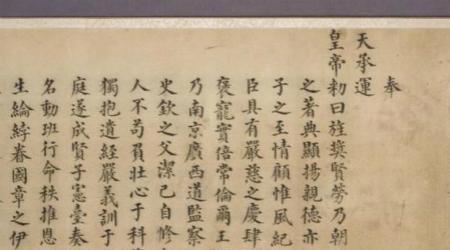 奉
天承運
皇帝勅曰旌奬賢勞乃朝
之著典顯揚親德亦
子之至情顧惟風紀
臣具有嚴慈之慶肆
褒寵實倍常倫爾王
乃南京廣西道監察
史欽之父潔己自修
人不苟負壯心于科
獨抱遺經嚴義訓于
庭遂成賢子憲臺奏
名動班行命秩推恩
生綸綍眷國章之伊